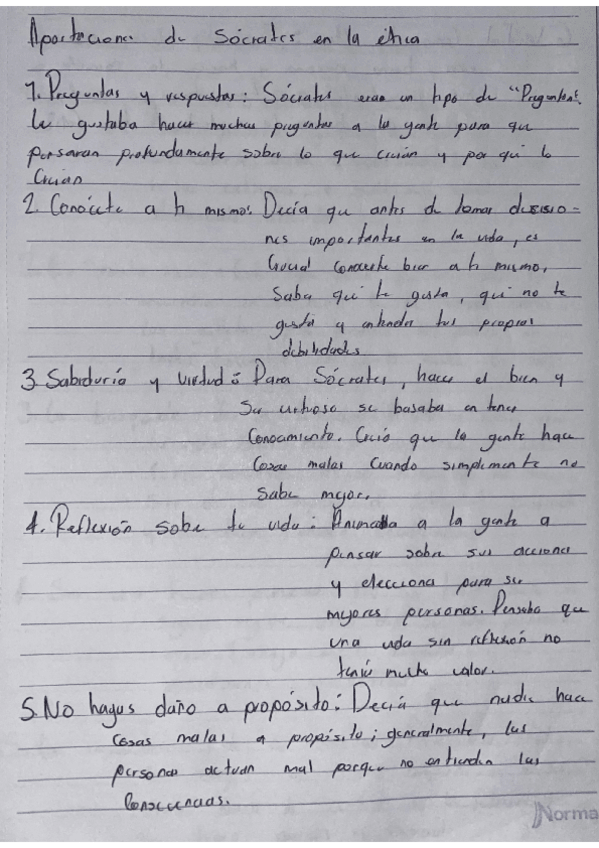 Aportaciones de Sócrates en la ética
1. Preguntas y respuestas: Sócrates eran un tipo de "Preguntón".
le gustaba hacer muchas preguntas a la gente para que
pensaran profundamente sobre lo que creián y por qué lo
Creián
2. Conócete a ti mismo: Decía que antes de tomar desisio-
nes importantes en la vida, es
Crucial conocerte bien a ti mismo,
Saba qué te gusta, qué no te
gusta y entender tus propias
debilidades
3. Sabiduría y virtud: Para Sócrates, hacer el bien y
Ser virtuoso se basaba en tener
Conocimiento. Creió que la gente hace
Cosas malas Cuando simplemente no
Sabe mejor.
4. Reflexión sobre tu vida: Animaba a la gente a
pensar sobre sus acciones
y elecciones para ser
mejores personas. Pensaba que
una vida sin reflexión no
tenié mucho valor.
5. No hagas daño a propósito: Decía que nadie hace
Cosas malas a propósito; generalmente, las
personas actúan mal porque no entienden las
Consecuencias.
Norma